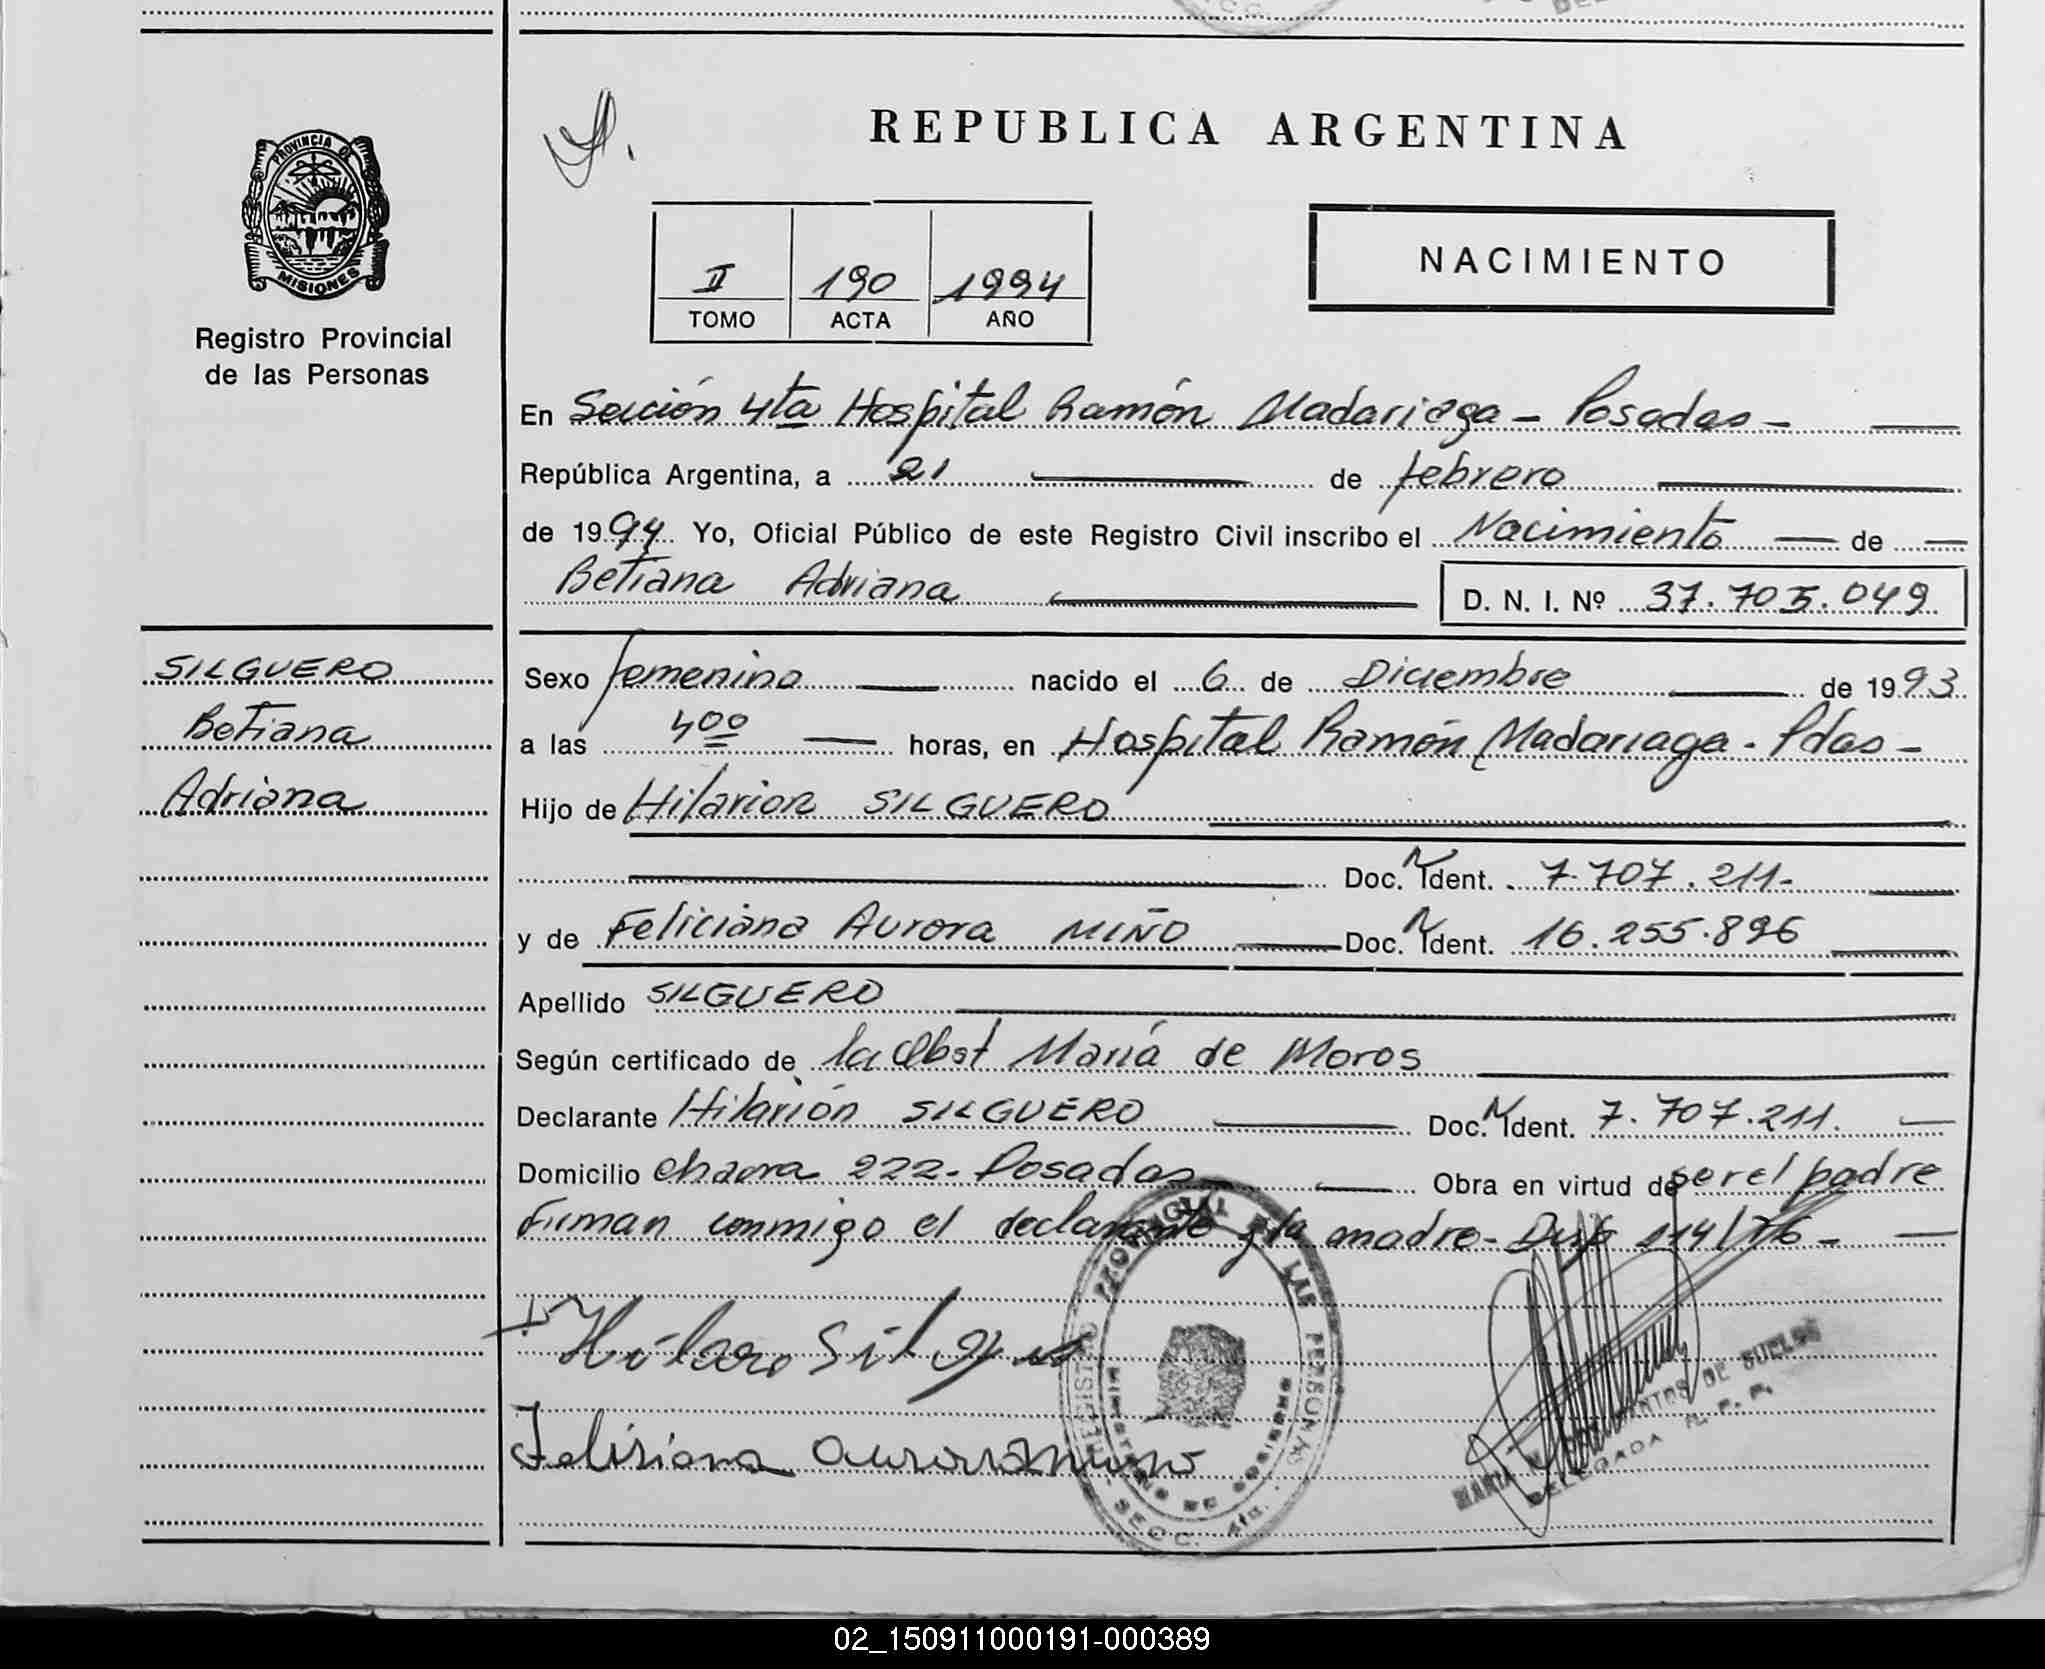 REPUBLICA ARGENTINA
PROVINCIA DE
MISIONES
Registro Provincial
de las Personas
II 190 1994
TOMO ACTA AÑO
NACIMIENTO
En Sección 4ta Hospital Ramón Madariaga - Posadas -
República Argentina, a 21 de febrero
de 1994 Yo, Oficial Público de este Registro Civil inscribo el Nacimiento de
Betiana Adriana D. N. I. Nº 37.705.049
SILGUERO
Betiana
Adriana
Sexo femenino nacido el 6 de Diciembre de 1993
a las 4 00 horas, en Hospital Ramón Madariaga - Pdas -
Hijo de Hilarion SILGUERO
Doc. N Ident. 7.707.211.-
y de Feliciana Aurora MIÑO Doc. N Ident. 16.255.896
Apellido SILGUERO
Según certificado de la Obst María de Moros
Declarante Hilarión SILGUERO Doc. N Ident. 7.707.211.
Domicilio chacra 222 - Posadas Obra en virtud de ser el padre
Firman conmigo el declarante y la madre - Disp 114/76 -
Hilario Silguero
Felisiana aurora miño
REGISTRO PROVINCIAL DE LAS PERSONAS
MINISTERIO DE GOBIERNO
SECC. 4ta.
MARIA DE SUELDO
DELEGADA R. P. P.
02_150911000191-000389